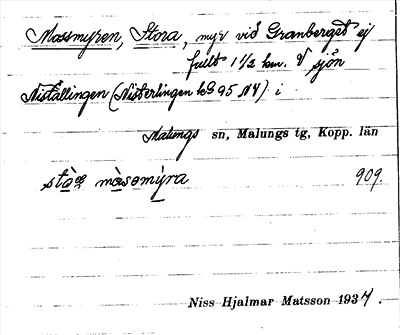 Mossmyren, Stora, myr vid Granberget ej
fullt 1 1/2 km. V sjön
Niställingen (Nisterlingen kS 95 NV) i
Malungs sn, Malungs tg, Kopp. län
909.
Niss Hjalmar Matsson 1937.